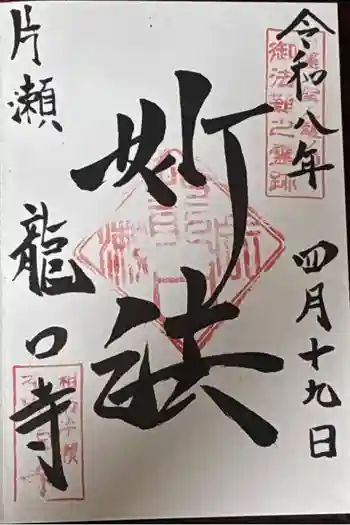 令和八年 四月十九日
御法難之霊跡
妙法
片瀬 龍口寺